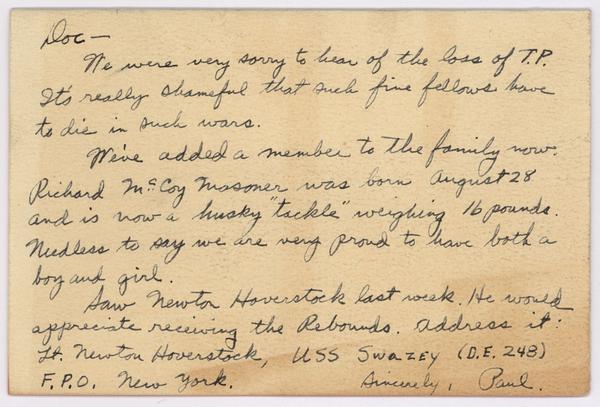 Doc —
We were very sorry to hear of the loss of T.P.
It's really shameful that such fine fellows have
to die in such wars.
We've added a member to the family now.
Richard McCoy Masoner was born August 28
and is now a husky "tackle" weighing 16 pounds.
Needless to say we are very proud to have both a
boy and girl.
Saw Newton Hoverstock last week. He would
appreciate receiving the Rebounds. Address it:
Lt. Newton Hoverstock, USS Swazey (D.E. 248)
F.P.O. New York. Sincerely, Paul.